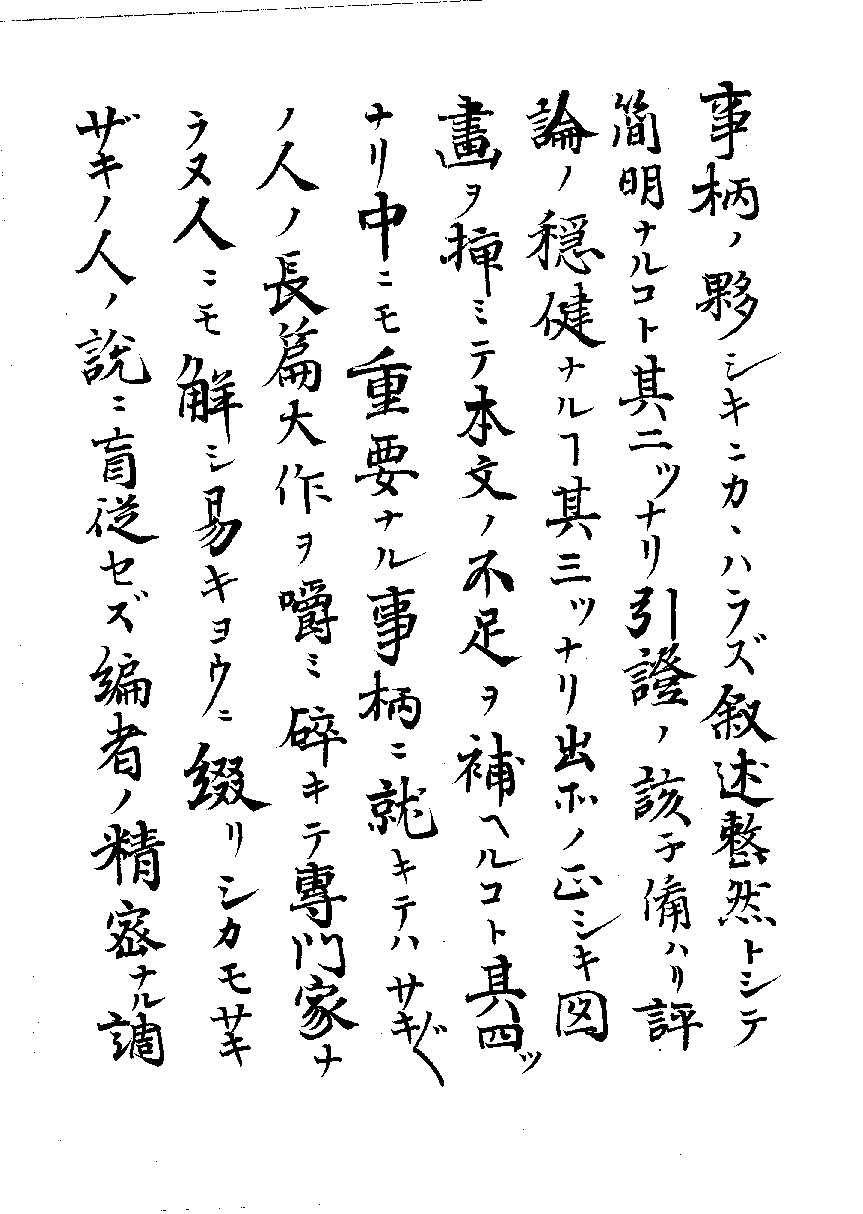 事柄ノ夥シキニカヽハラズ叙述整然トシテ
簡明ナルコト其二ツナリ引證ノ該子備ハリ評
論ノ穏健ナルヿ其三ツナリ出所ノ正シキ図
畫ヲ挿ミテ本文ノ不足ヲ補ヘルコト其四ツ
ナリ中ニモ重要ナル事柄ニ就キテハサキ〴〵
ノ人ノ長篇大作ヲ嚼ミ碎キテ專門家ナ
ラヌ人ニモ解シ易キヨウニ綴リシカモサキ
ザキノ人ノ説ニ盲従セズ編者ノ精密ナル調